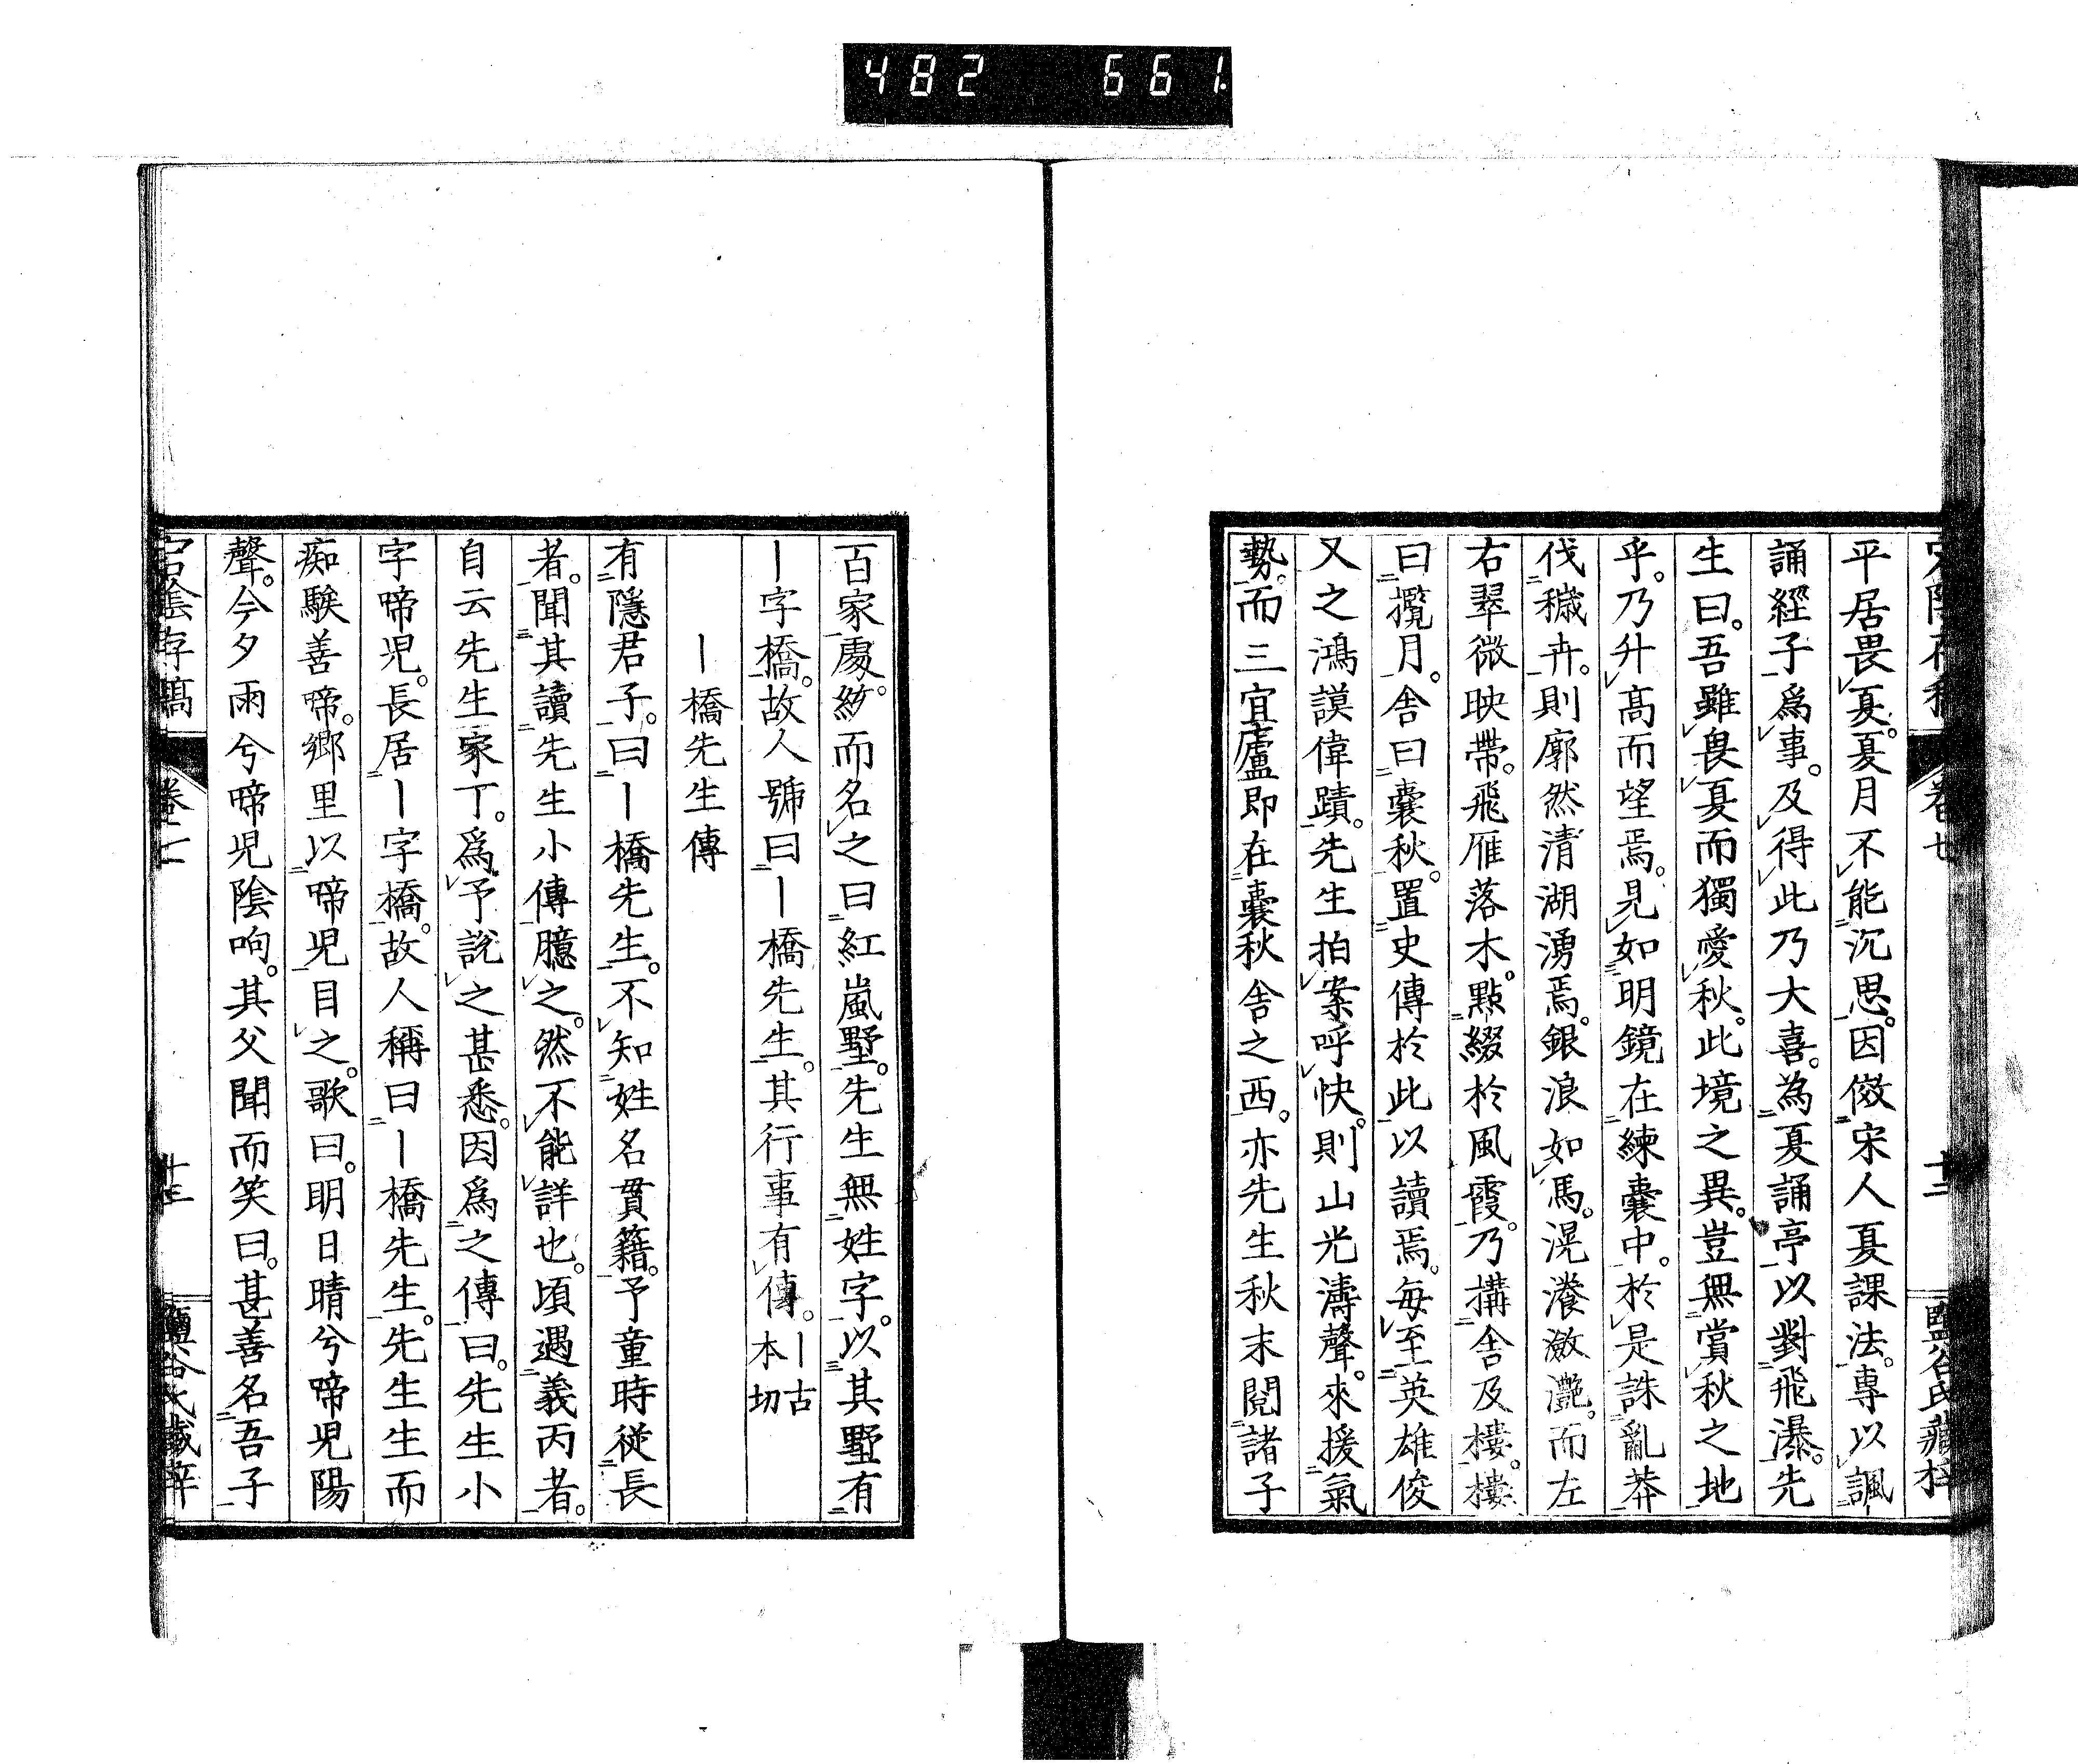 482 661
宕陰存稿 卷七 十二 鹽谷氏藏梓
平居畏夏。夏月不能沉思。因倣宋人夏課法。專以諷
誦經子爲事。及得此乃大喜。為夏誦亭以對飛瀑。先
生曰。吾雖畏夏而獨愛秋。此境之異。豈無賞秋之地
乎。乃升髙而望焉。見如明鏡在練囊中。於是誅亂莽
伐穢卉。則廓然清湖湧焉。銀浪如馮。滉瀁瀲灔。而左
右翠微映帶。飛雁落木。點綴於風霞。乃搆舍及樓。樓
曰攬月。舍曰囊秋。置史傳於此以讀焉。每至英雄俊
乂之鴻謨偉蹟。先生拍案呼快。則山光濤聲。來援氣
勢。而三宜廬即在囊秋舍之西。亦先生秋末閱諸子
百家處。紘而名之曰紅嵐墅。先生無姓字。以其墅有
丨字橋。故人號曰丨橋先生。其行事有傳。丨古本切
丨橋先生傳
有隱君子。曰丨橋先生。不知姓名貫籍。予童時從長
者。聞其讀先生小傳。臆之。然不能詳也。頃遇義丙者。
自云先生家丁。爲予說之甚悉。因爲之傳。曰。先生小
字啼児。長居丨字橋。故人稱曰丨橋先生。先生生而
痴騃善啼。鄉里以啼児目之。歌曰。明日晴兮啼児陽
聲。今夕雨兮啼児陰响。其父聞而笑曰。甚善名吾子
宕陰存稿 卷七 十三 鹽谷氏藏梓